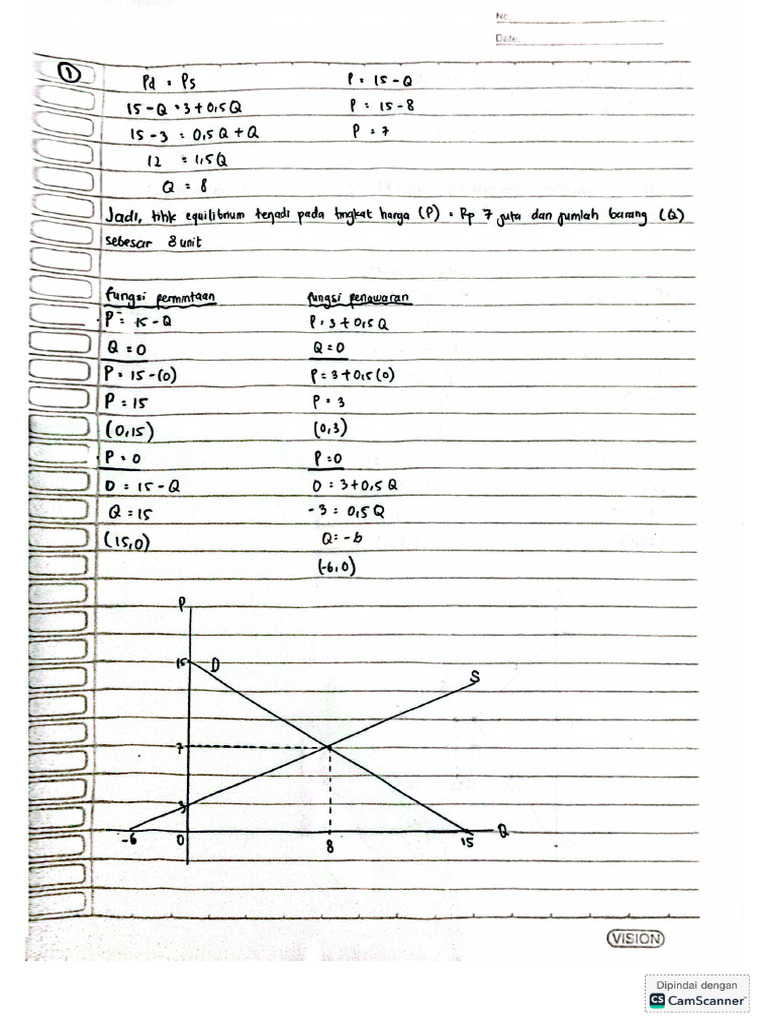 No.
Date.
①
Pd = Ps
P = 15 - Q
15 - Q = 3 + 0,5 Q
P = 15 - 8
15 - 3 = 0,5 Q + Q
P = 7
12 = 1,5 Q
Q = 8
Jadi, titik equilibrium terjadi pada tingkat harga (P) = Rp 7 juta dan jumlah barang (Q)
sebesar 8 unit
fungsi permintaan
fungsi penawaran
P = 15 - Q
P = 3 + 0,5 Q
Q = 0
Q = 0
P = 15 - (0)
P = 3 + 0,5 (0)
P = 15
P = 3
(0,15)
(0,3)
P = 0
P = 0
0 = 15 - Q
0 = 3 + 0,5 Q
Q = 15
-3 = 0,5 Q
(15,0)
Q = -6
(-6,0)
P
15 D
S
7
3
Q
-6 0 8 15
VISION
Dipindai dengan
CS CamScanner